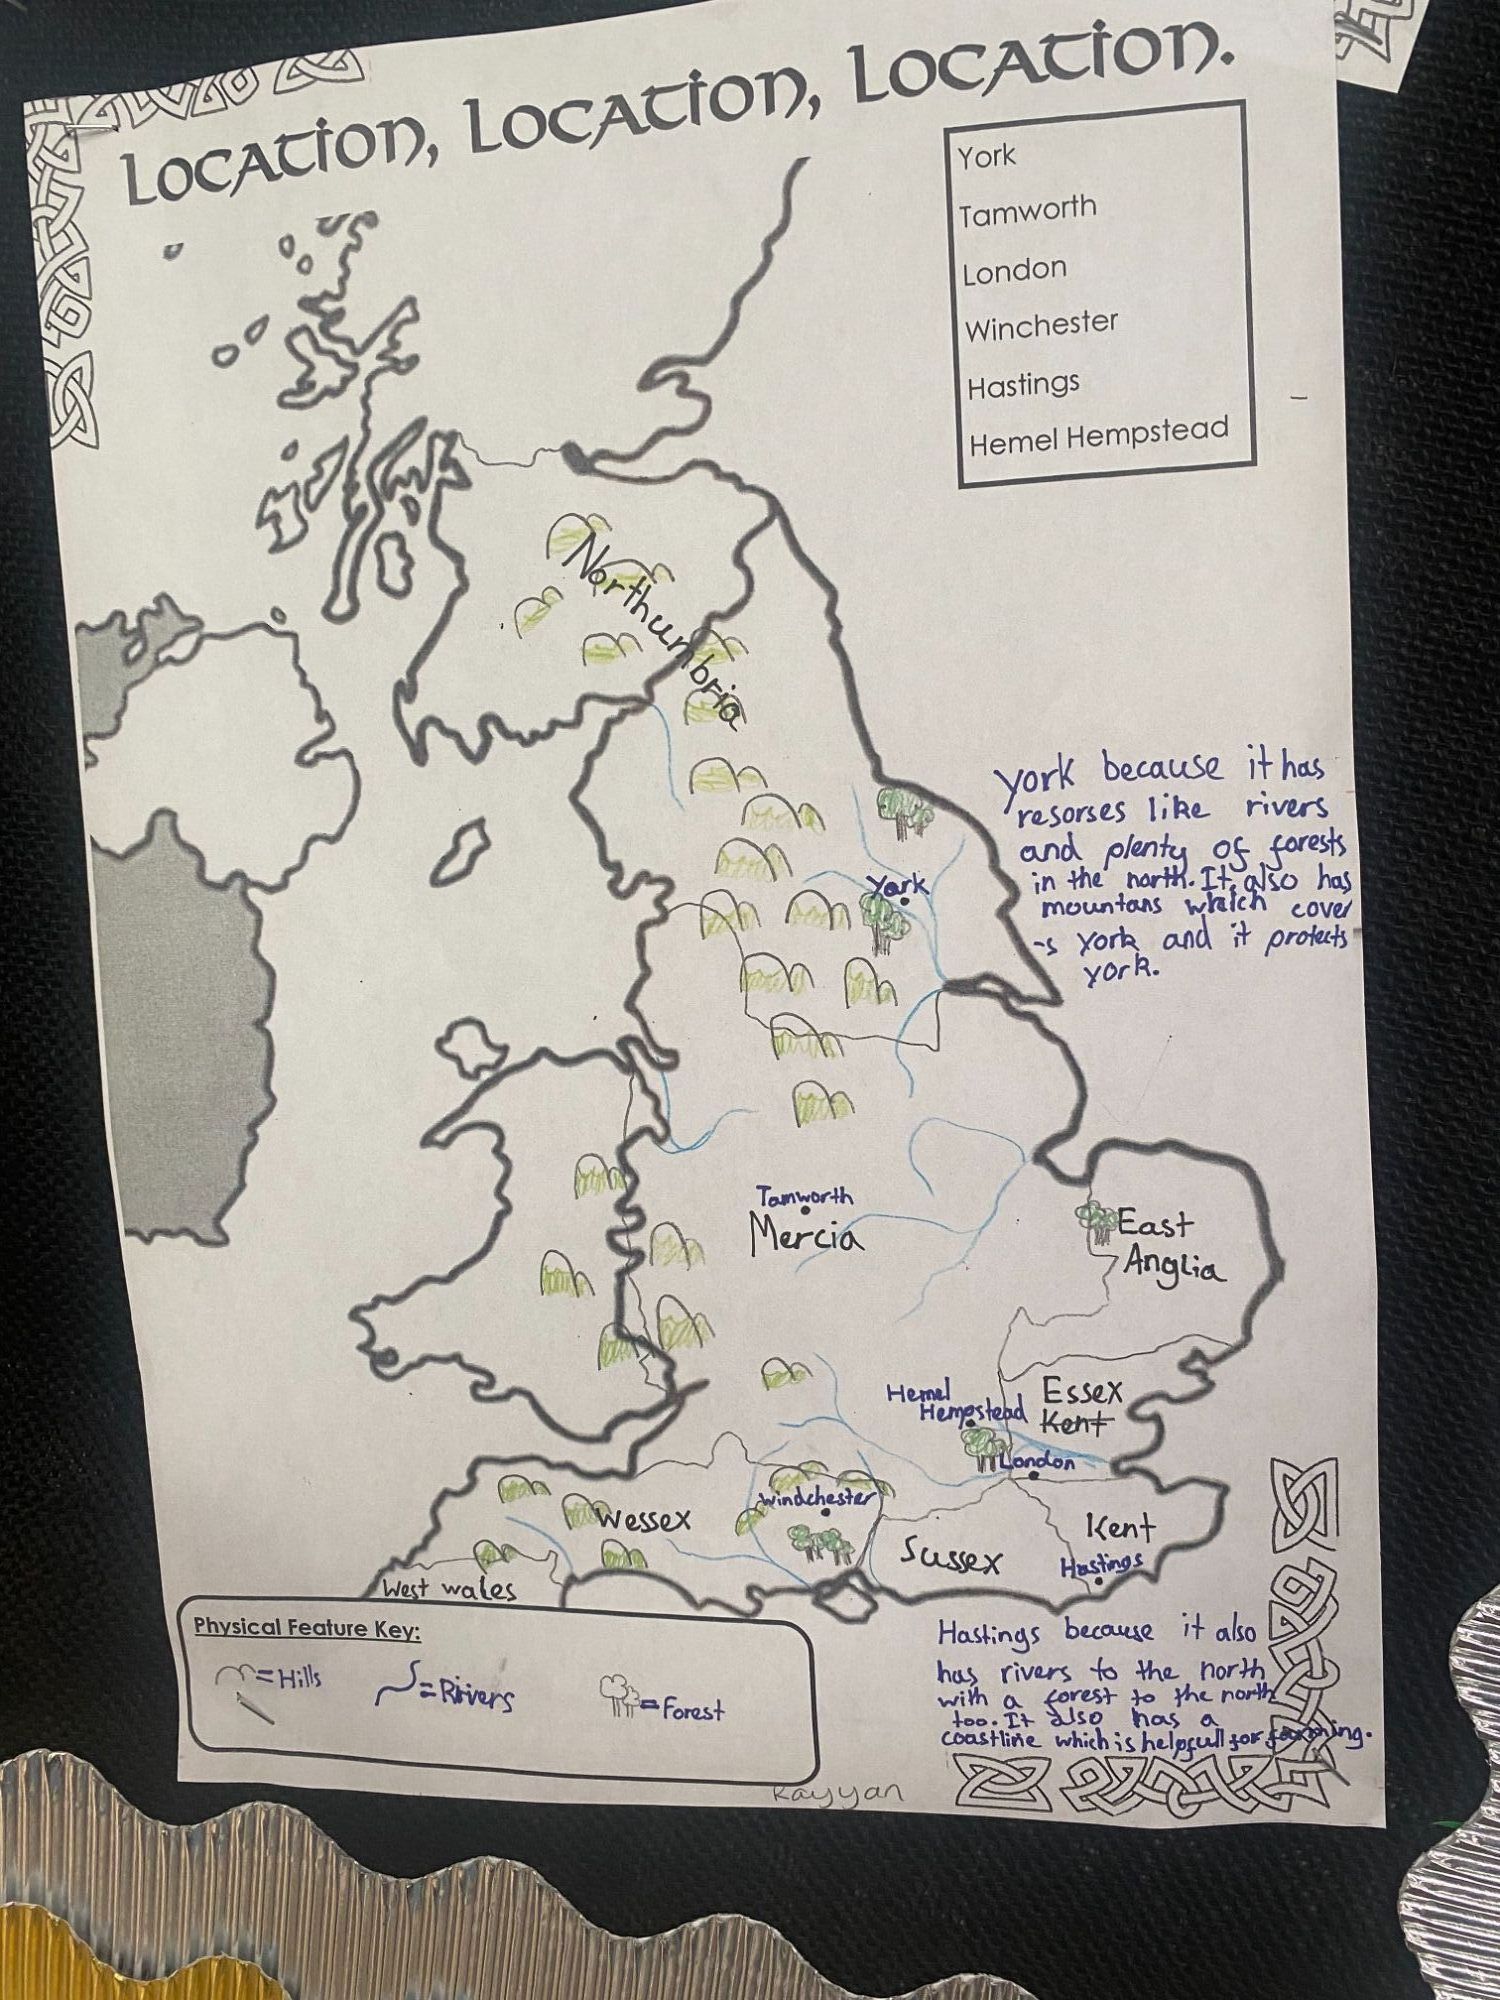 Location, Location, Location.
York
Tamworth
London
Winchester
Hastings
Hemel Hempstead
Northumbria
york because it has
resorses like rivers
and plenty of forests
in the north. It also has
mountans which cover
-s york and it protects
york.
York
Tamworth
Mercia
East
Anglia
Hemel
Hempstead
Essex
Kent
London
Windchester
Wessex
Sussex
Kent
Hastings
West wales
Physical Feature Key:
=Hills
=Rivers
=Forest
Hastings because it also
has rivers to the north
with a forest to the north
too. It also has a
coastline which is helpfull for farming.
Kayyan